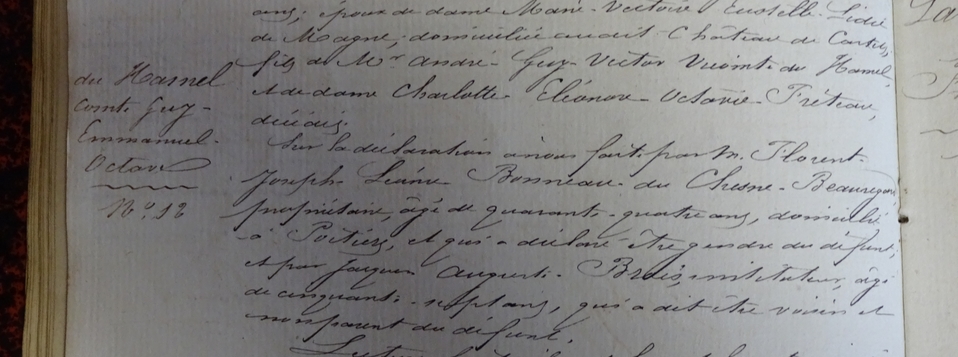 ans; époux de dame Marie-Victoire Lidie
de Magne, domiciliée audit Château de
fils de Mr André-Guy-Victor Vicomte du Hamel
et de dame Charlotte Eléonore-Octavie Fréteau,
décédés.
du Hamel
comte Guy-
Emmanuel-
Octave
No. 12
Sur la déclaration à nous faite par m. Florent-
Joseph-Bonneau du Chesne-Beauregard,
propriétaire, âgé de quarante-quatre ans, domicilié
à Poitiers, et qui a déclaré être gendre du défunt;
et par Jacques Auguste instituteur, âgé
de cinquante-sept ans, qui a dit être voisin et
non parent du défunt.